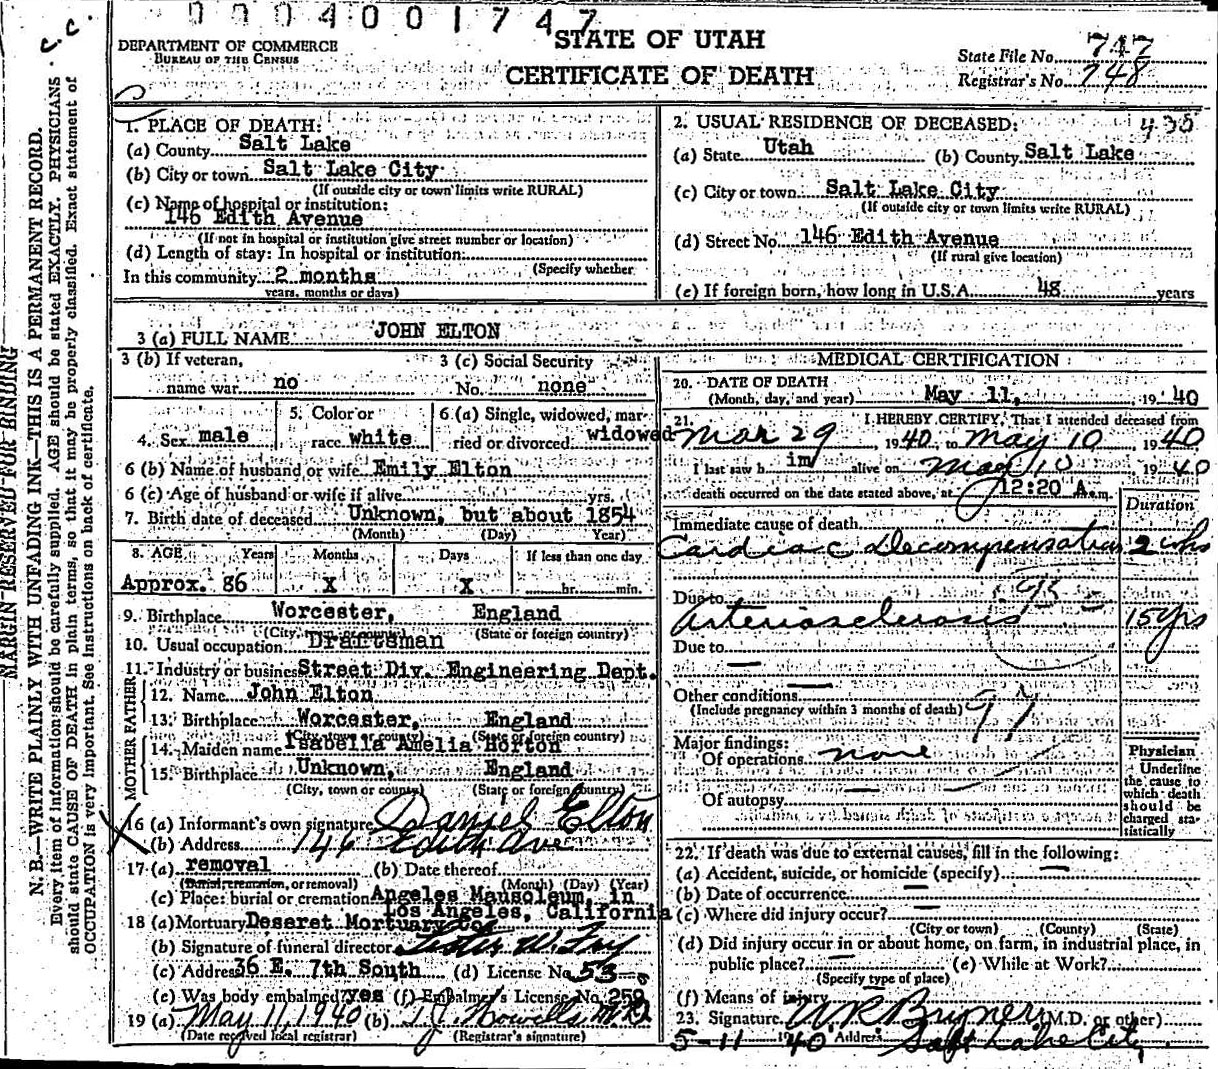 0004001747
c.c.
DEPARTMENT OF COMMERCE
BUREAU OF THE CENSUS
STATE OF UTAH
CERTIFICATE OF DEATH
State File No. 747
Registrar's No. 748
MARGIN RESERVED FOR BINDING
N. B.—WRITE PLAINLY WITH UNFADING INK—THIS IS A PERMANENT RECORD.
Every item of information should be carefully supplied. AGE should be stated EXACTLY. PHYSICIANS
should state CAUSE OF DEATH in plain terms, so that it may be properly classified. Exact statement of
OCCUPATION is very important. See instructions on back of certificate.
1. PLACE OF DEATH:
(a) County Salt Lake
(b) City or town Salt Lake City
(If outside city or town limits write RURAL)
(c) Name of hospital or institution:
146 Edith Avenue
(If not in hospital or institution give street number or location)
(d) Length of stay: In hospital or institution:
(Specify whether
In this community 2 months
years, months or days)
2. USUAL RESIDENCE OF DECEASED: 435
(a) State Utah (b) County Salt Lake
(c) City or town Salt Lake City
(If outside city or town limits write RURAL)
(d) Street No. 146 Edith Avenue
(If rural give location)
(e) If foreign born, how long in U.S.A. 48 years
3 (a) FULL NAME JOHN ELTON
3 (b) If veteran,
name war no
3 (c) Social Security
No. none
4. Sex male
5. Color or
race white
6 (a) Single, widowed, mar-
ried or divorced widowed
6 (b) Name of husband or wife Emily Elton
6 (c) Age of husband or wife if alive yrs.
7. Birth date of deceased Unknown, but about 1854
(Month) (Day) Year)
8. AGE Years Months Days If less than one day
Approx. 86 X X hr. min.
9. Birthplace Worcester, England
(City, town or county) (State or foreign country)
10. Usual occupation Draftsman
11. Industry or business Street Div. Engineering Dept.
FATHER
12. Name John Elton
13. Birthplace Worcester, England
(City, town or county) (State or foreign country)
MOTHER
14. Maiden name Isabella Amelia Horton
15. Birthplace Unknown, England
(City, town or county) (State or foreign country)
16 (a) Informant's own signature Daniel Elton
(b) Address 146 Edith Ave
17 (a) removal (b) Date thereof
(Burial, cremation, or removal) (Month) (Day) (Year)
(c) Place: burial or cremation Angeles Mausoleum, in
Los Angeles, California
18 (a) Mortuary Deseret Mortuary Co.
(b) Signature of funeral director
(c) Address 36 E. 7th South (d) License No. 53
(e) Was body embalmed? yes (f) Embalmer's License No. 259
19 (a) May 11, 1940 (b) Howells M.D.
(Date received local registrar) (Registrar's signature)
MEDICAL CERTIFICATION
20. DATE OF DEATH
(Month, day, and year) May 11, 19 40
21. I HEREBY CERTIFY, That I attended deceased from
Mar 29, 1940 to May 10 1940
I last saw h im alive on May 10 1940
death occurred on the date stated above, at 12:20 A.m.
Duration
Immediate cause of death
Cardiac Decompensation 2 wks
Due to 93
Arteriosclerosis 15 yrs
Due to
Other conditions
(Include pregnancy within 3 months of death) 97
Major findings:
Of operations none
Of autopsy
Physician
Underline
the cause to
which death
should be
charged sta-
tistically
22. If death was due to external causes, fill in the following:
(a) Accident, suicide, or homicide (specify)
(b) Date of occurrence
(c) Where did injury occur?
(City or town) (County) (State)
(d) Did injury occur in or about home, on farm, in industrial place, in
public place? (e) While at Work?
(Specify type of place)
(f) Means of injury
23. Signature U R Bryner (M.D. or other)
5-11 1940 Address Salt Lake City